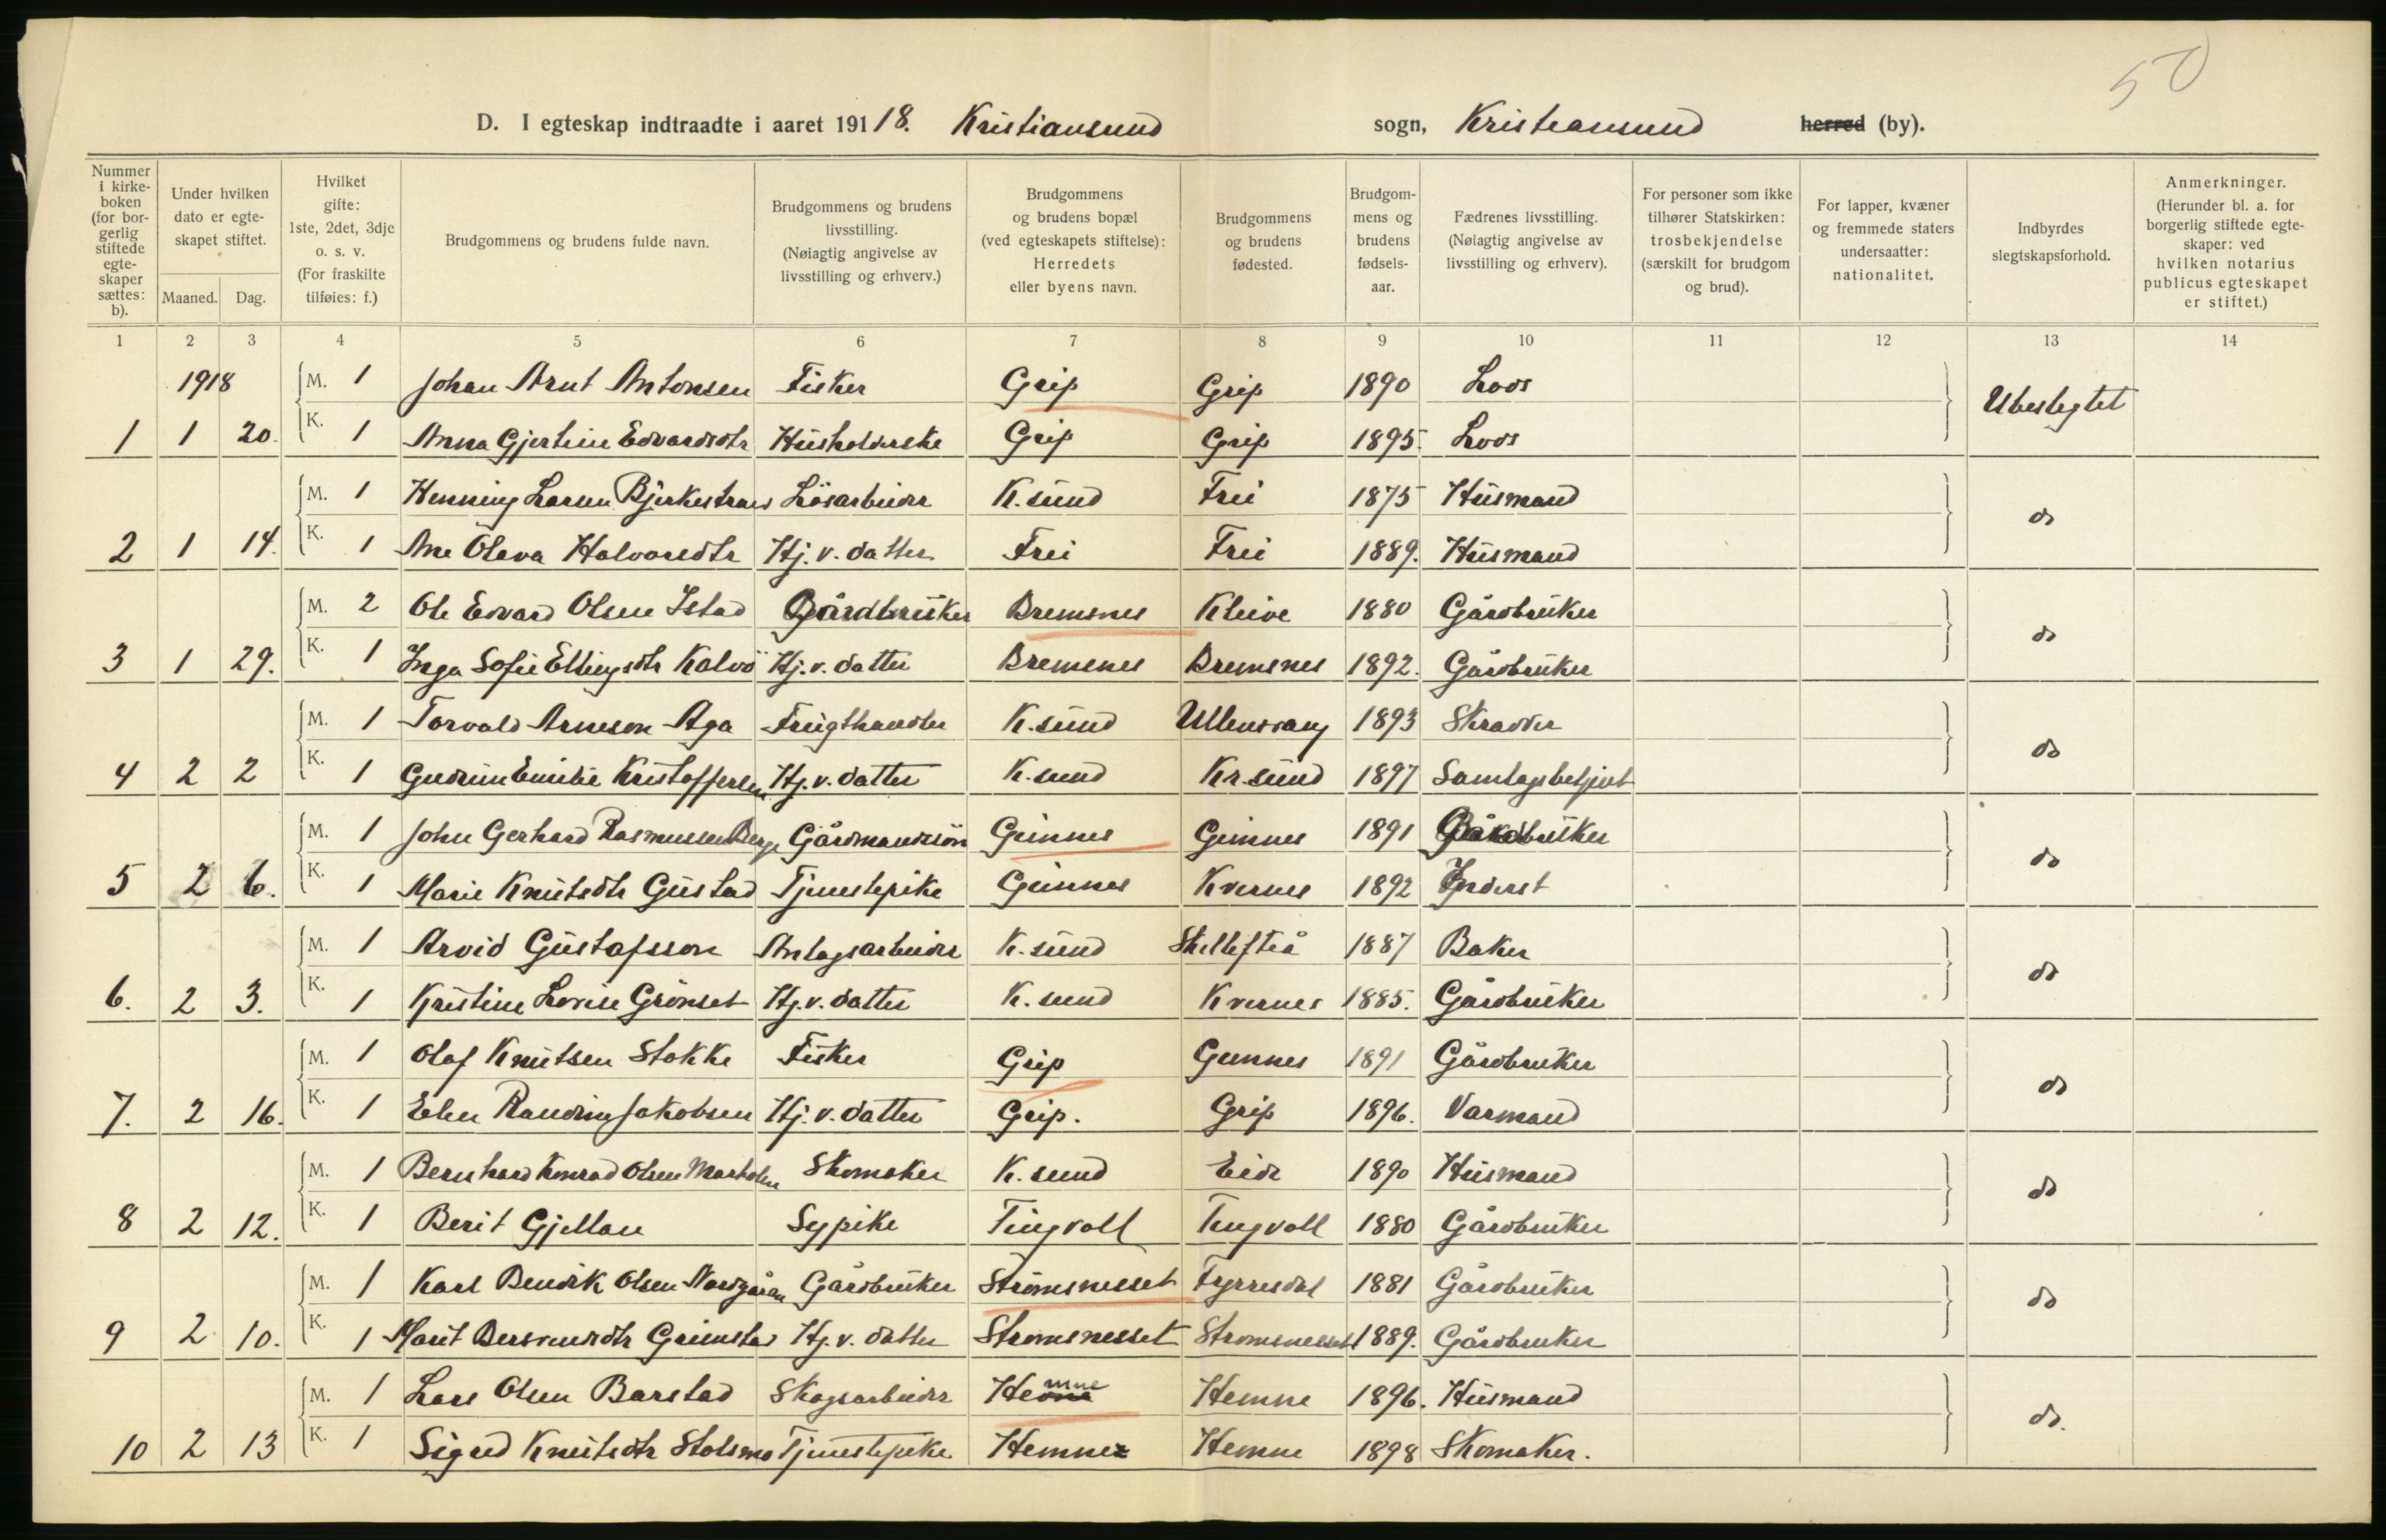 50
D. I egteskap indtraadte i aaret 191 18. Kristiansund sogn, Kristiansund herred (by).
Nummer i kirke-boken (for bor-gerlig stiftede egte-skaper sættes: b).
Under hvilken dato er egte-skapet stiftet.
Maaned. Dag.
Hvilket gifte: 1ste, 2det, 3dje o. s. v. (For fraskilte tilføies: f.)
Brudgommens og brudens fulde navn.
Brudgommens og brudens livsstilling. (Nøiagtig angivelse av livsstilling og erhverv.)
Brudgommens og brudens bopæl (ved egteskapets stiftelse): Herredets eller byens navn.
Brudgommens og brudens fødested.
Brudgom-mens og brudens fødsels-aar.
Fædrenes livsstilling. (Nøiagtig angivelse av livsstilling og erhverv).
For personer som ikke tilhører Statskirken: trosbekjendelse (særskilt for brudgom og brud).
For lapper, kvæner og fremmede staters undersaatter: nationalitet.
Indbyrdes slegtskapsforhold.
Anmerkninger. (Herunder bl. a. for borgerlig stiftede egte-skaper: ved hvilken notarius publicus egteskapet er stiftet.)
1 2 3 4 5 6 7 8 9 10 11 12 13 14
1918 M. 1 Johan Arnt Antonsen Fisker Grip Grip 1890 Lods Ubeslegtet
1 1 20. K. 1 Anna Gjertine Edvardsdtr Husholderske Grip Grip 1895. Lods
M. 1 Henning Larsen Bjerkestrand Lösarbeider K.sund Frei 1875 Husmand do
2 1 14. K. 1 Ane Olava Halvorsdtr Hj. v. datter Frei Frei 1889. Husmand
M. 2 Ole Edvard Olsen Istad Gårdbruker Bremsnes Kleive 1880 Gårdbruker do
3 1 29. K. 1 Inga Sofie Ellingsdtr Kalvö Hj. v. datter Bremsnes Bremsnes 1892. Gårdbruker
M. 1 Torvald Arneson Aga Frugthandler K.sund Ullensvang 1893 Skrædder do
4 2 2 K. 1 Gudrun Emilie Kristoffersen Hj. v. datter K.sund Kr.sund 1897 Samlagsbetjent
M. 1 John Gerhard Rasmussen Berge Gårdmandssön Gimnes Gimnes 1891 Gårdbruker do
5 2 6. K. 1 Marie Knutsdtr Gustad Tjenestepike Gimnes Kvernes 1892 Inderst
M. 1 Arvid Gustafsson Anlagsarbeider K.sund Skellefteå 1887 Baker do
6. 2 3. K. 1 Kristine Lovise Grönset Hj. v. datter K.sund Kvernes 1885. Gårdbruker
M. 1 Olaf Knutsen Stokke Fisker Grip Gimnes 1891 Gårdbruker do
7. 2 16. K. 1 Elen Randine Jakobsen Hj. v. datter Grip. Grip 1896. Varmand
M. 1 Bernhard Konrad Olsen Skomaker K.sund Eide 1890 Husmand do
8 2 12. K. 1 Berit Gjellan Sypike Tingvoll Tingvoll 1880 Gårdbruker
M. 1 Karl Bendik Olsen Nordgåran Gårdbruker Strömsnesset Fyrresdal 1881 Gårdbruker do
9 2 10. K. 1 Marit Bersvendsdtr Grimstad Hj. v. datter Strømsnesset Strømsnesset 1889. Gårdbruker
M. 1 Lars Olsen Barstad Skogsarbeider Hemne Hemne 1896. Husmand do.
10 2 13 K. 1 Sigrid Knutsdtr Stolsmo Tjenestepike Hemne Hemne 1898 Skomaker.